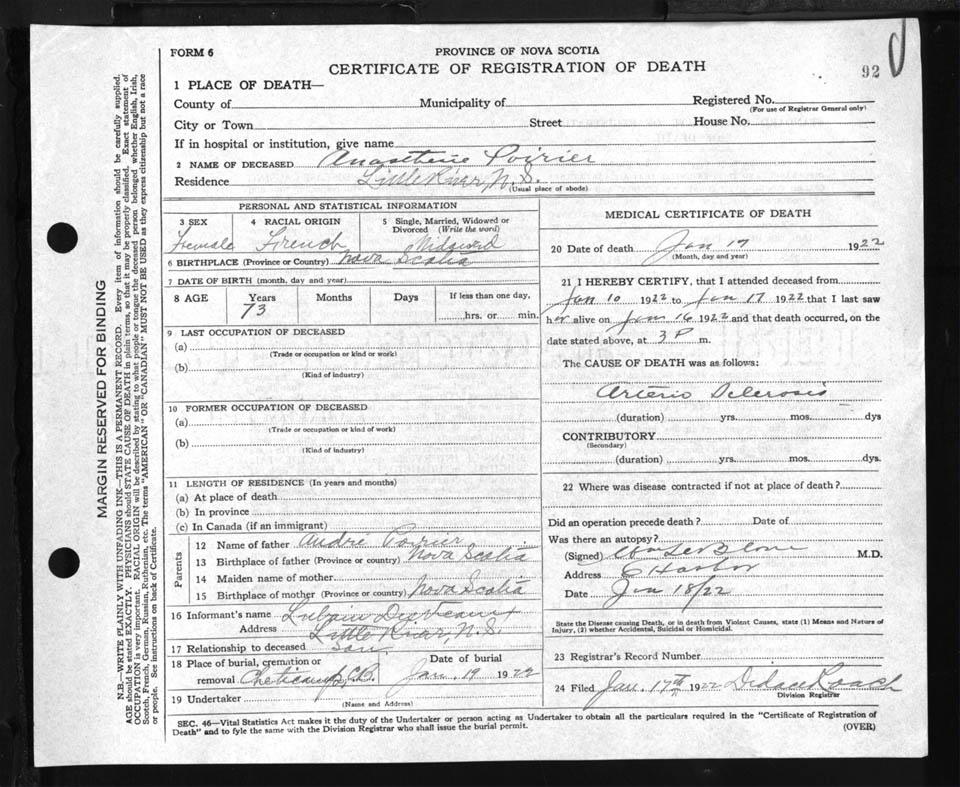 FORM 6
PROVINCE OF NOVA SCOTIA
CERTIFICATE OF REGISTRATION OF DEATH
92
1 PLACE OF DEATH—
County of Municipality of Registered No.
(For use of Registrar General only)
City or Town Street House No.
If in hospital or institution, give name
2 NAME OF DECEASED Anasthasie Poirier
Residence Little River, N.S.
(Usual place of abode)
PERSONAL AND STATISTICAL INFORMATION
3 SEX 4 RACIAL ORIGIN 5 Single, Married, Widowed or Divorced (Write the word)
Female French Widowed
6 BIRTHPLACE (Province or Country) Nova Scotia
7 DATE OF BIRTH (month, day and year)
8 AGE Years Months Days If less than one day,
73 hrs. or min.
9 LAST OCCUPATION OF DECEASED
(a)
(Trade or occupation or kind or work)
(b)
(Kind of industry)
10 FORMER OCCUPATION OF DECEASED
(a)
(Trade or occupation or kind of work)
(b)
(Kind of industry)
11 LENGTH OF RESIDENCE (In years and months)
(a) At place of death
(b) In province
(c) In Canada (if an immigrant)
Parents
12 Name of father André Poirier
13 Birthplace of father (Province or country) Nova Scotia
14 Maiden name of mother
15 Birthplace of mother (Province or country) Nova Scotia
16 Informant's name Lubain Deveaux
Address Little River, N.S.
17 Relationship to deceased son
18 Place of burial, cremation or Date of burial
removal Cheticamp, C.B. Jan. 19 1922
19 Undertaker
(Name and Address)
MEDICAL CERTIFICATE OF DEATH
20 Date of death Jan 17 1922
(Month, day and year)
21 I HEREBY CERTIFY, that I attended deceased from
Jan 10 1922 to Jan 17 1922 that I last saw
her alive on Jan 16 1922 and that death occurred, on the
date stated above, at 3 P m.
The CAUSE OF DEATH was as follows:
Arterio Sclerosis
(duration) yrs. mos. dys
CONTRIBUTORY
(Secondary)
(duration) yrs. mos. dys.
22 Where was disease contracted if not at place of death?
Did an operation precede death? Date of
Was there an autopsy?
(Signed) M.D.
Address E Harbor
Date Jan 18/22
State the Disease causing Death, or in death from Violent Causes, state (1) Means and Nature of
Injury, (2) whether Accidental, Suicidal or Homicidal.
23 Registrar's Record Number
24 Filed Jan. 17th 1922 Didace Roach
Division Registrar
SEC. 46—Vital Statistics Act makes it the duty of the Undertaker or person acting as Undertaker to obtain all the particulars required in the "Certificate of Registration of
Death" and to fyle the same with the Division Registrar who shall issue the burial permit.
(OVER)
MARGIN RESERVED FOR BINDING
N.B.—WRITE PLAINLY WITH UNFADING INK—THIS IS A PERMANENT RECORD. Every item of information should be carefully supplied.
AGE should be stated EXACTLY. PHYSICIANS should STATE CAUSE OF DEATH in plain terms, so that it may be properly classified. Exact statement of
OCCUPATION is very important. RACIAL ORIGIN will be described by stating to what people or tongue the deceased person belonged whether English, Irish,
Scotch, French, German, Russian, Ruthenian, etc. The terms "AMERICAN" OR "CANADIAN" MUST NOT BE USED as they express citizenship but not a race
or people. See instructions on back of Certificate.